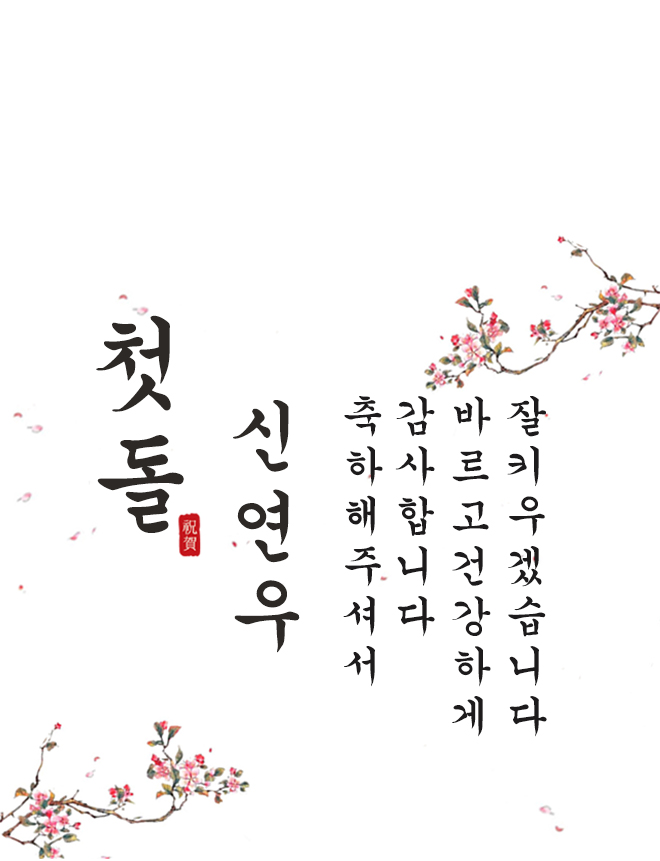 첫돌
祝賀
신연우
축하해주셔서
감사합니다
바르고건강하게
잘키우겠습니다